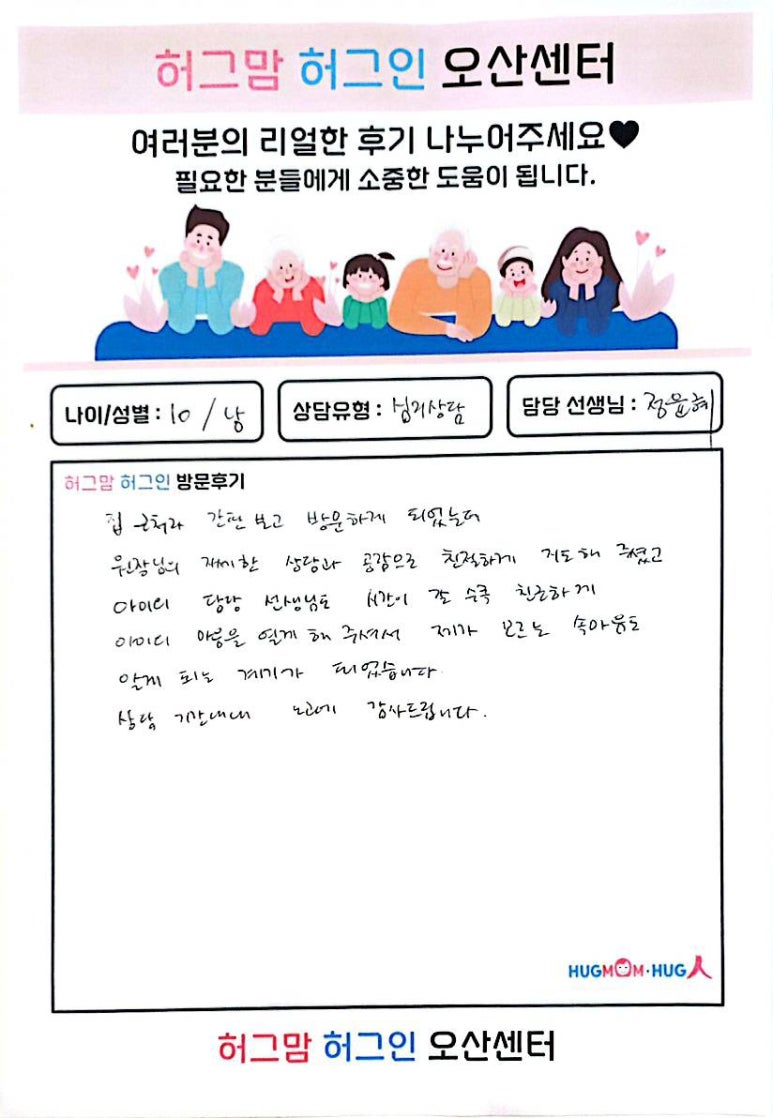 허그맘 허그인 오산센터
여러분의 리얼한 후기 나누어주세요♥
필요한 분들에게 소중한 도움이 됩니다.
나이/성별 : 10 / 남
상담유형 : 심리상담
담당 선생님 : 정윤혜
허그맘 허그인 방문후기
집 근처라 간판 보고 방문하게 되었는데
원장님의 자세한 상담과 공감으로 친절하게 지도해 주셨고
아이의 담당 선생님도 시간이 갈 수록 친근하게
아이의 마음을 열게 해 주셔서 제가 모르는 속마음도
알게 되는 계기가 되었습니다.
상담 기간내내 노고에 감사드립니다.
HUGMOM·HUG人
허그맘 허그인 오산센터